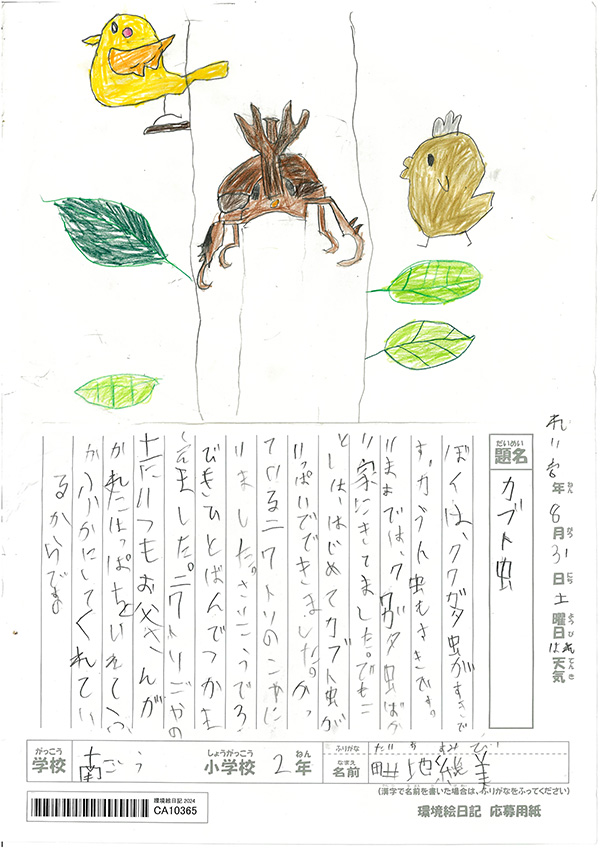 れい
年8月31日土曜日はれ天気
ねんがつにちようびてんき
だいめい
題名
カブト虫
ぼくは、クワガタ虫がすきで
す。カブト虫もすきです。
いままでは、クワガタ虫ばか
り家にきてました。でもこ
としは、はじめてカブト虫が
いっぱいでてきました。かっ
ているニワトリのこやに
いました。さいこうで3
びきひとばんでつかま
えました。ニワトリごやの
土にいつもお父さんが
かれたはっぱをいれてふ
かふかにしてくれてい
るからです。
がっこう しょうがっこう ねん ふりがな
学校 南ごう 小学校 2年 なまえ 名前
(漢字で名前を書いた場合は、ふりがなをふってください)
環境絵日記 2024
CA10365
環境絵日記 応募用紙